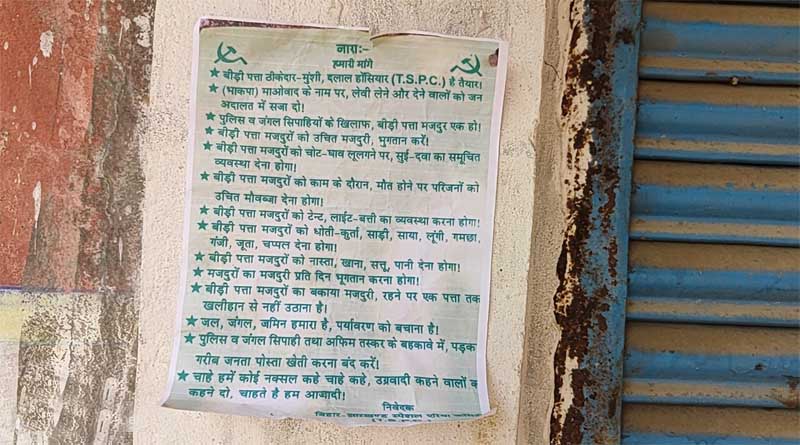 नाराः-
हमारी मांगे
★ बीड़ी पत्ता ठीकेदार-मुंशी, दलाल होंसियार (T.S.P.C.) है तैयार!
★ (भाकपा) माओवाद के नाम पर, लेवी लेने और देने वालों को जन
अदालत में सजा दो!
★ पुलिस व जंगल सिपाहियों के खिलाफ, बीड़ी पत्ता मजदुर एक हो!
★ बीड़ी पत्ता मजदुरों को उचित मजदुरी, भुगतान करें!
★ बीड़ी पत्ता मजदुरों को चोट-घाव लूलगने पर, सुई-दवा का समूचित
व्यवस्था देना होगा!
★ बीड़ी पत्ता मजदुरों को काम के दौरान, मौत होने पर परिजनों को
उचित मौवब्जा देना होगा!
★ बीड़ी पत्ता मजदुरों को टेन्ट, लाईट-बत्ती का व्यवस्था करना होगा!
★ बीड़ी पत्ता मजदुरों को धोती-कुर्ता, साड़ी, साया, लूंगी, गमछा,
गंजी, जूता, चप्पल देना होगा!
★ बीड़ी पत्ता मजदुरों को नास्ता, खाना, सत्तू, पानी देना होगा!
★ मजदुरों का मजदुरी प्रति दिन भूगतान करना होगा!
★ बीड़ी पत्ता मजदुरों का बकाया मजदुरी, रहने पर एक पत्ता तक
खलीहान से नहीं उठाना है।
★ जल, जंगल, जमिन हमारा है, पर्यावरण को बचाना है!
★ पुलिस व जंगल सिपाही तथा अफिम तस्कर के बहकावे में, पड़क
गरीब जनता पोस्ता खेती करना बंद करें।
★ चाहे हमें कोई नक्सल कहे चाहे कहे, उग्रवादी कहने वालों क
कहने दो, चाहते है हम आजादी!
निवेदक
बिहार-झारखण्ड स्पेशल एरिया
(T.S.P.C.)